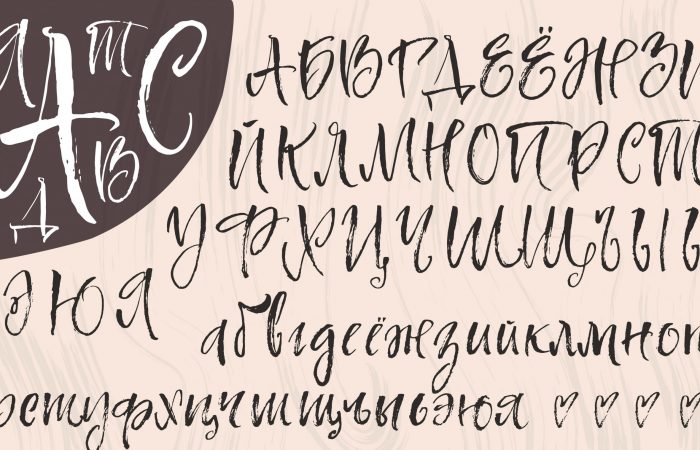 Я А т
А С
д в
АБВГДЕЁЖЗИ
ЙКЛМНОПРСТ
УФХЦЧШЩЪЫЬ
ЭЮЯ
абвгдеёжзийклмноп
рстуфхцчшщъыьэюя ♡ ♡ ♡ ♡